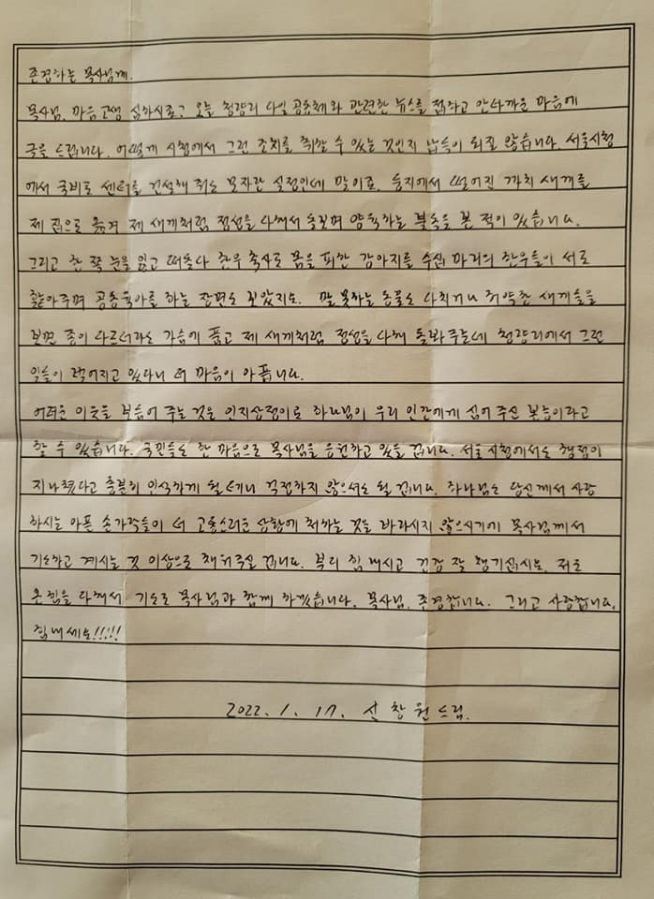 존경하는 목사님께.
목사님, 마음고생 심하시죠? 오늘 청량리 다일공동체와 관련한 뉴스를 접하고 안타까운 마음에
글을 드립니다. 어떻게 시청에서 그런 조치를 취할 수 있는 것인지 납득이 되질 않습니다. 서울시청
에서 국비로 센터를 건설해 줘도 모자란 실정인데 말이죠. 둥지에서 떨어진 까치 새끼를
제 집으로 옮겨 제 새끼처럼 정성을 다해서 돌보며 양육하는 동물을 본 적이 있습니다.
그리고 한 쪽 눈을 잃고 떠돌다 한우 축사로 몸을 피한 강아지를 수십 마리의 한우들이 서로
핥아주며 공동육아를 하는 장면도 보았지요. 말 못하는 동물도 다치거나 허약한 새끼들을
보면 종이 다르더라도 가슴에 품고 제 새끼처럼 정성을 다해 돌봐 주는데 청량리에서 그런
일들이 벌어지고 있다니 더 마음이 아픕니다.
어려운 이웃을 보듬어 주는 것은 인지상정이고 하나님이 우리 인간에게 심어 주신 본능이라고
할 수 있습니다. 국민들도 한 마음으로 목사님을 응원하고 있을 겁니다. 서울시청에서도 행정이
지나쳤다고 충분히 인식하게 될테니 걱정하지 않으셔도 될 겁니다. 하나님은 당신께서 사랑
하시는 아픈 손가락들이 더 고통스러운 상황에 처하는 것을 바라시지 않으시기에 목사님께서
기도하고 계시는 것 이상으로 채워주실 겁니다. 부디 힘 내시고 건강 잘 챙기십시오. 저도
온 힘을 다해서 기도로 목사님과 함께 하겠습니다. 목사님, 존경합니다. 그리고 사랑합니다.
힘내세요!!!!!
2022. 1. 17. 신창원 드림.